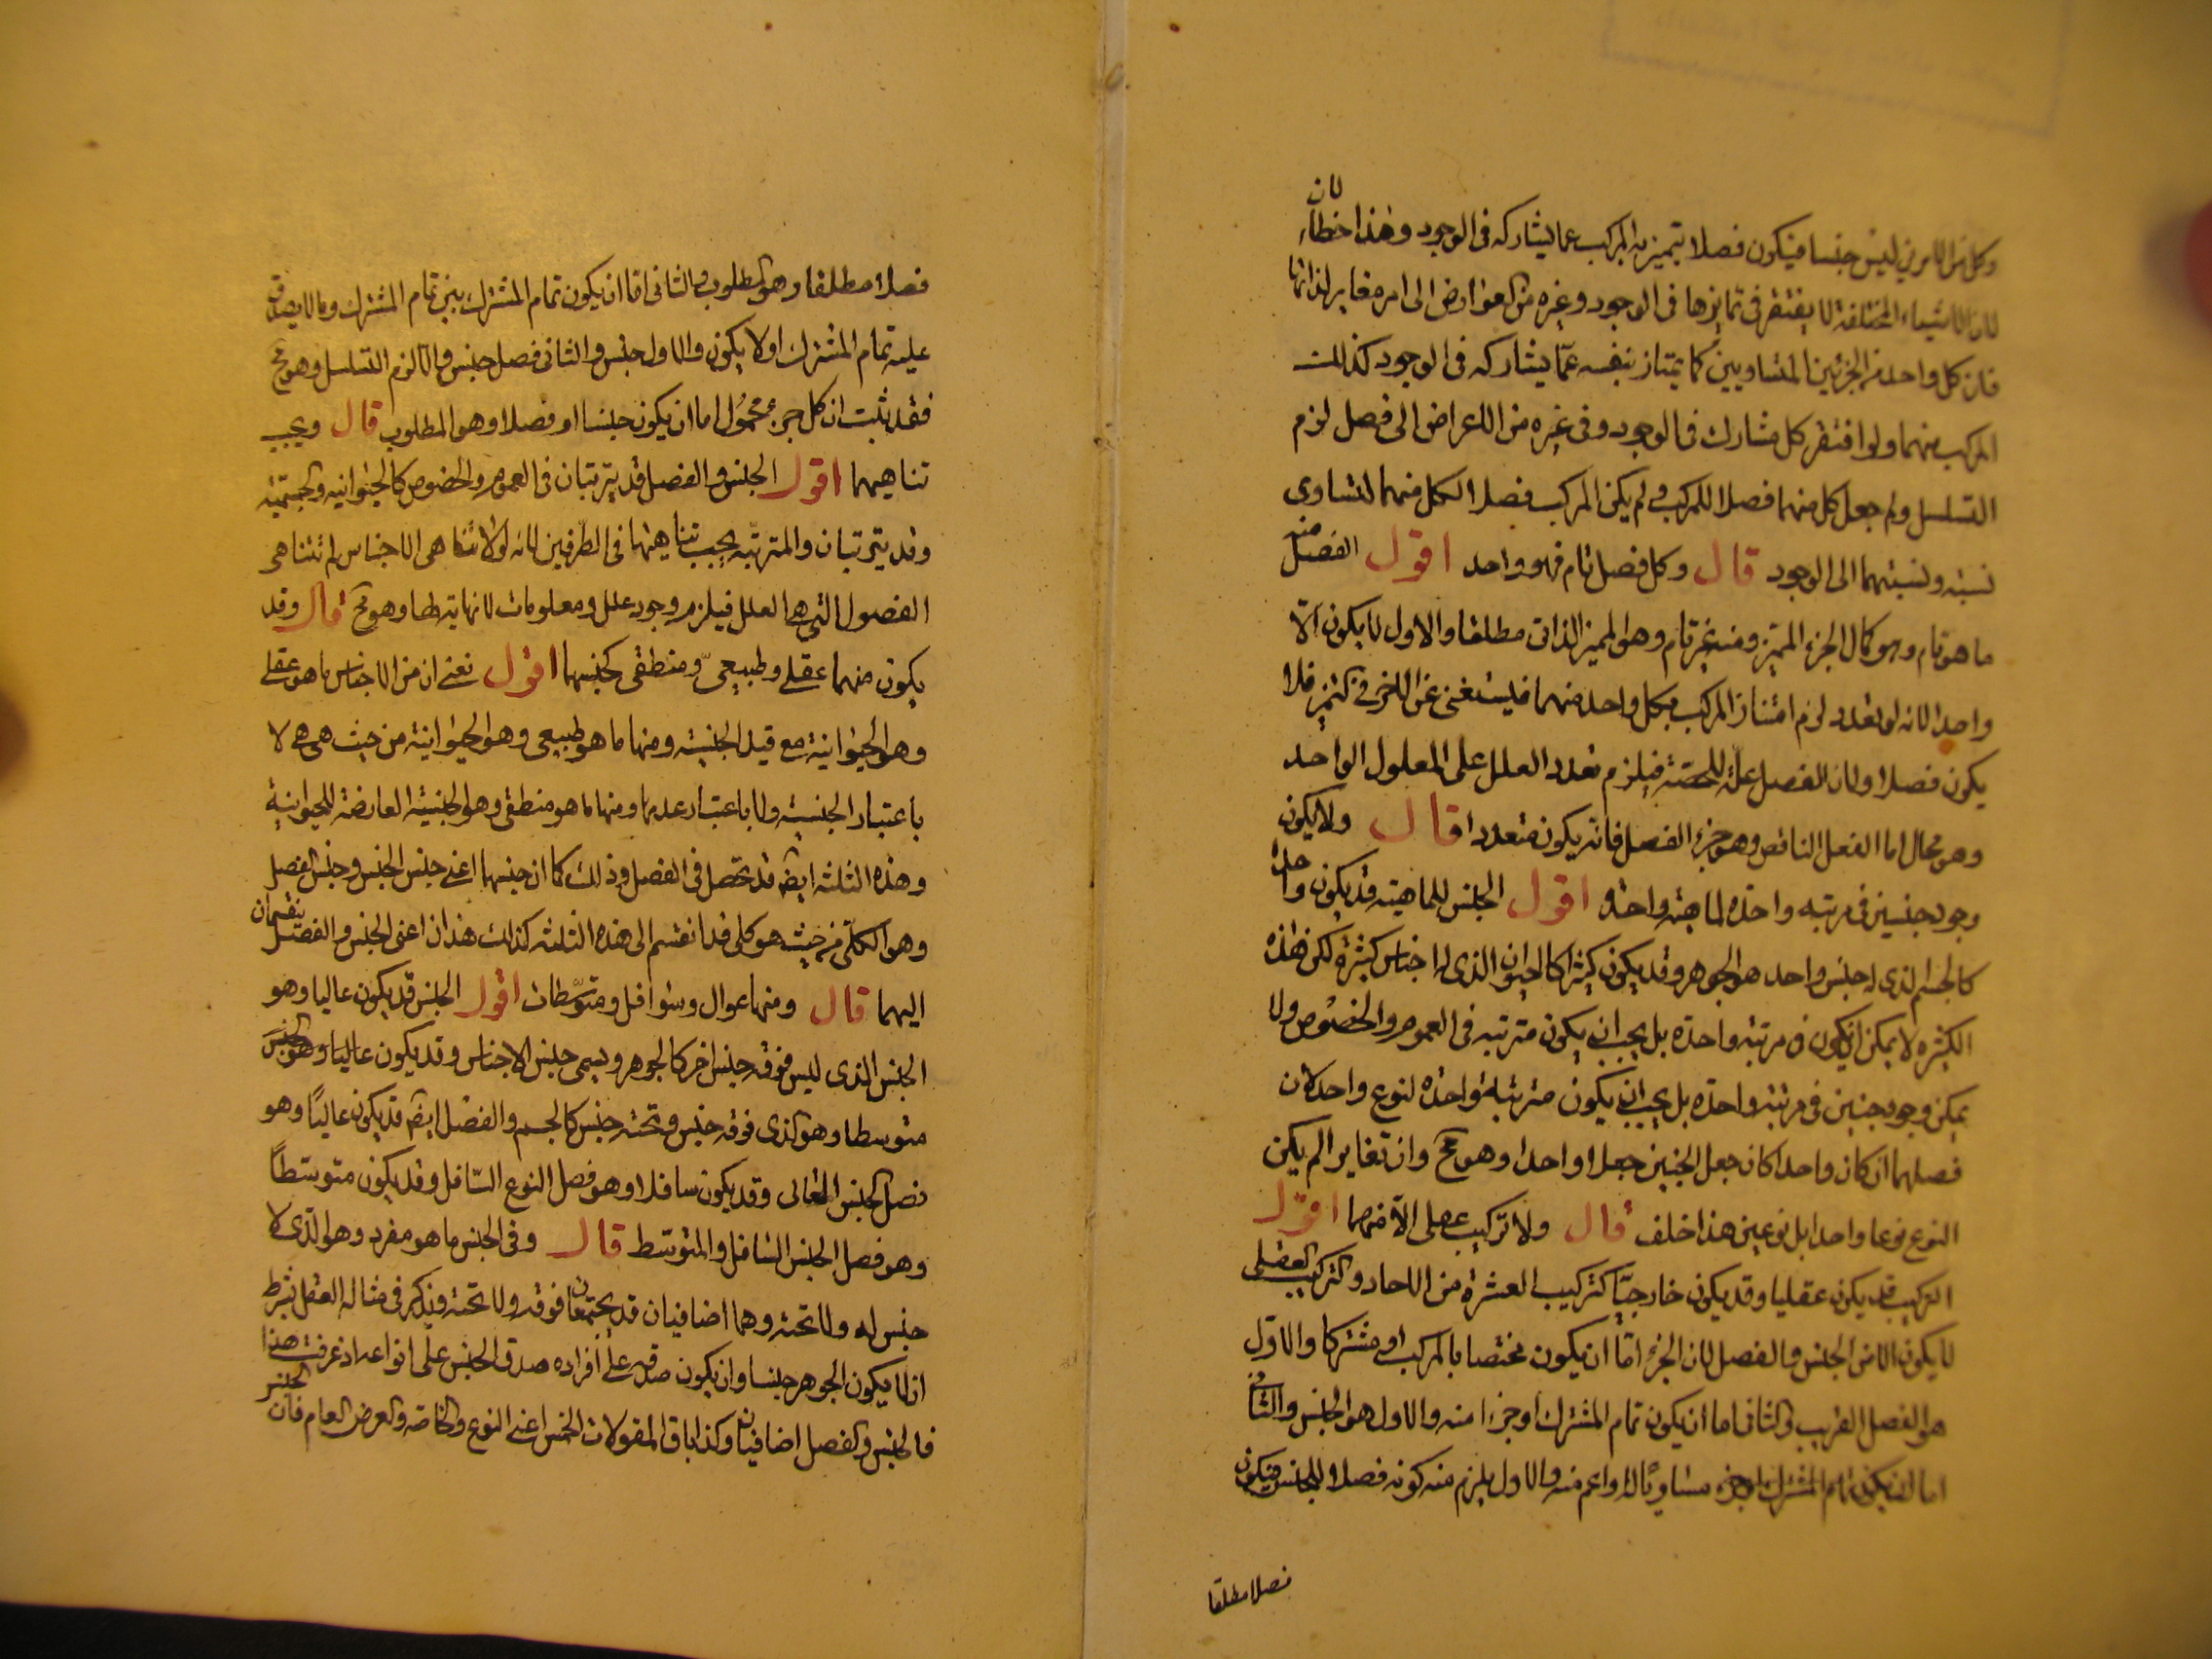 وكل من الامرين ليس جنسا فيكون فصلا يتميز به المركب عما يشاركه في الوجود وهذا خطاء لان
لان الاشياء المختلفة لا يفتقر في تمايزها في الوجود وغيره من العوارض الى امر مغاير لذاتها
فان كل واحد من الجزئين المتساويين كما يمتاز بنفسه عما يشاركه في الوجود كذلك
المركب منهما ولو افتقر كل مشارك في الوجود وفي غيره من الاعراض الى فصل لزم
التسلسل ولم جعل كل منهما فصلا للمركب و لم يكن المركب فصلا لكل منهما لتساوى
نسبته ونسبتهما الى الوجود قال وكل فصل تام فهو واحد اقول الفصل منه
ما هو تام وهو كمال الجزء المميز ومنه غير تام وهو المميز الذاتى مطلقا والاول لا يكون الّا
واحدا لانه لو تعدد لزم امتياز المركب بكل واحد منهما فيستغنى عن الاخر في التميز فلا
يكون فصلا ولان الفصل علة للحصّة فيلزم تعدد العلل على المعلول الواحد
وهو محال اما الفصل الناقص وهو جزء الفصل فانه يكون متعددا قال ولا يكون
وجود جنسين في مرتبه واحدة لماهيته واحدة اقول الجنس للماهيته قد يكون واحدا
كالجسم الذى له جنس واحد هو الجوهر وقد يكون كثيرا كالحيوان الذى له اجناس كثيرة لكن هذه
الكثيره لا يمكن ان يكون في مرتبه واحدة بل يجب ان يكون مترتبه في العموم والخصوص ولا
يمكن وجود جنسين في مرتبة واحدة بل يجب ان يكون مترتبة واحدة لنوع واحد لان
فصلهما ان كان واحدا كان جعل الجنسين جعلا واحدا وهو مح وان تغاير الم يكن
النوع نوعا واحدا بل نوعين هذا خلف قال ولا تركيب عقلى الّا منهما اقول
التركيب قد يكون عقليا وقد يكون خارجيّا كتركيب العشرة من الاحاد والتركيب العقلى
لا يكون الا من الجنس والفصل لان الجزء امّا ان يكون مختصا بالمركب او مشتركا والاوّل
هو الفصل القريب والثانى اما ان يكون تمام المشترك او جزءا منه والاول هو الجنس والثانى
اما ان يكون تمام المشترك او جزء مساويا له او اعم منه والاول يلزم منه كونه فصلا للجنس فيكون
فصلا مطلقا
فصلا مطلقا وهو المطلوب والثانى امّا ان يكون تمام المشترك بين تمام المشترك وما لا يصدق
عليه تمام المشترك او لا يكون والاول جنس والثانى فصل جنس والّا لزم التسلسل وهو مح
فقد ثبت ان كل جزء محمول اما ان يكون جنسا او فصلا وهو المطلوب قال ويجب
تناهيهما اقول الجنس والفصل قد يترتبان في العموم والخصوص كالحيوانيه والجسميّه
وقد يترتبان والمترتبّه يجب تناهيها في الطرفين لانه لولا تناهى الاجناس لم تتناهى
الفصول التى هى العلل فيلزم وجود علل ومعلومات لا نهاية لها وهو مح قال وقد
يكون منهما عقلى وطبيعىّ ومنطقى كجنسهما اقول نعنى ان من الاجناس ما هو عقلى
وهو الحيوانية مع قيد الجنسيّه ومنها ما هو طبيعى وهو الحيوانية من حيث هى هى لا
باعتبار الجنسيه ولا باعتبار عدمها ومنها ما هو منطقى وهو الجنسيّة العارضة للحيوانية
وهذه الثلثه ايضا قد تحصل في الفصل وذلك كما ان جنسهما اعنى جنس الجنس وجنس الفصل
وهو الكلّى من حيث هو كلى قد انقسم الى هذه الثلثه كذلك هذان اعنى الجنس والفصل ينقسمان
اليهما قال ومنها عوال وسوافل ومتوسّطات اقول الجنس قد يكون عاليا وهو
الجنس الذى ليس فوقه جنس اخر كالجوهر ويسمى جنس الاجناس وقد يكون عاليا وهو الجنس
متوسطا وهو الذى فوقه جنس وتحته جنس كالجسم والفصل ايضا قد يكون عاليا وهو
فصل الجنس العالى وقد يكون سافلا وهو فصل النوع السّافل وقد يكون متوسّطا
وهو فصل الجنس السّافل والمتوسّط قال وفي الجنس ما هو مفرد وهو الّذى لا
جنس له ولا تحته وهما اضافيان قد يجتمعان فوقه ولا تحته ويذكر في مثاله العقل بشرط
ان لا يكون الجوهر جنسا وان يكون صدقه على افراده صدق الجنس على انواعه اذ عرفت هذا
فالجنس والفصل اضافيان وكذا باق المقولات الخمس اعنى النوع والخاصّه والعرض العام فان الجنس